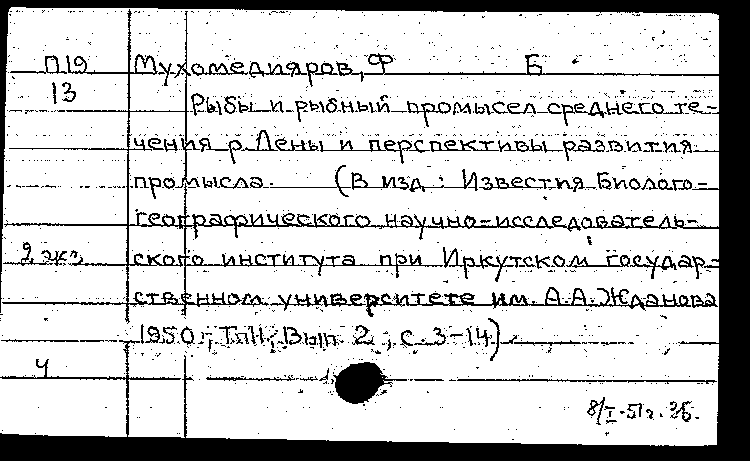 П19 Мухомедияров, Ф Б
13 Рыбы и рыбный промысел среднего те-
чения р. Лены и перспективы развития
промысла. (В изд: Известия Биолого-
географического научно-исследователь-
2 экз ского института при Иркутском государ-
ственном университете им. А.А. Жданова
1950, Вып 2, с. 3-14)
Ч
8/I-51г.